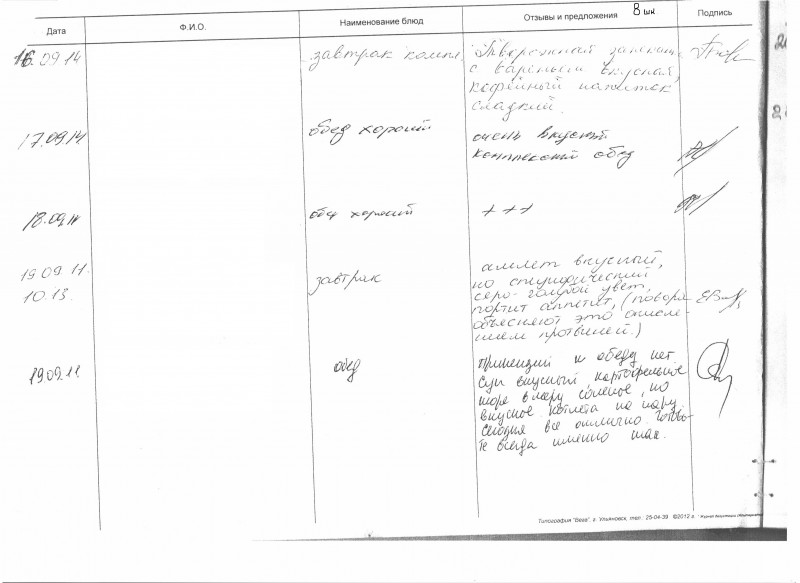 8 шк
Дата Ф.И.О. Наименование блюд Отзывы и предложения Подпись
16.09.14 завтрак компл. Творожная запекан.
с вареньем вкусная,
кофейный напиток
сладкий.
17.09.14 обед хороший очень вкусный
комплексный обед
18.09.14 обед хороший + + +
19.09.11. завтрак омлет вкусный,
10.13. но специфический
серо-голубой цвет,
портит аппетит, (повара
объясняют это окисле-
нием протвиней.)
19.09.11 обед Претензий к обеду нет
Суп вкусный, картофельное
пюре в меру соленое, но
вкусное. котлета на пару.
Сегодня все отлично. Готовь-
те всегда именно так.
Типография "Вега", г. Ульяновск, тел. 25-04-39 ©2012 г.